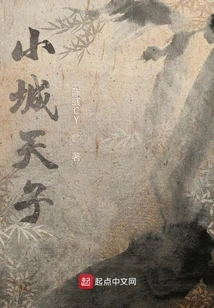 小城天子
著
起点
起点中文网